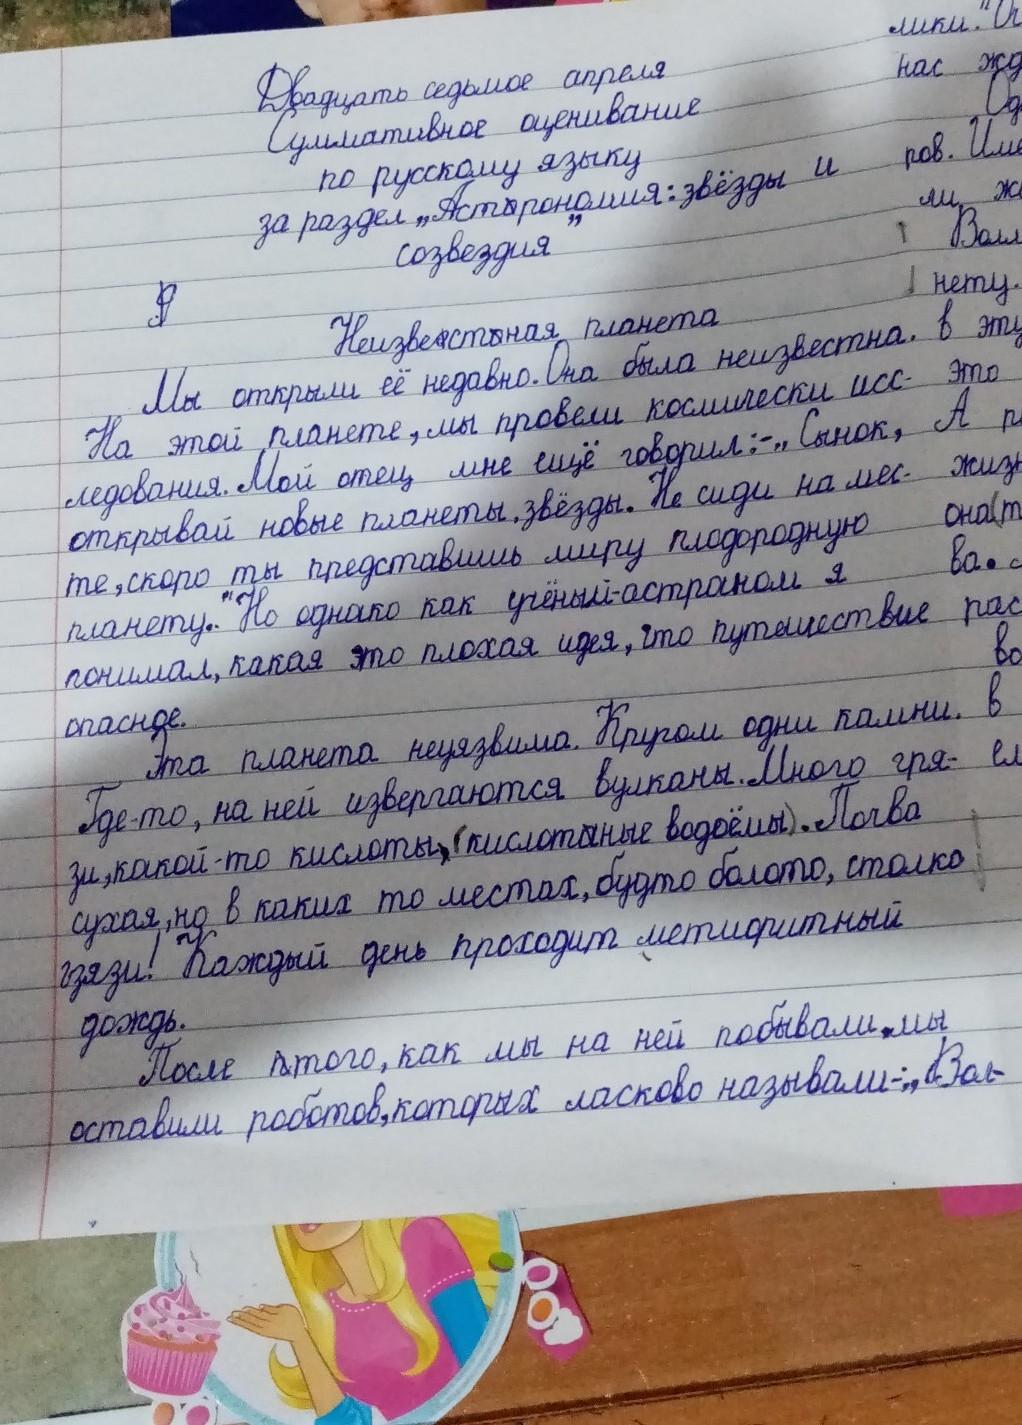 Двадцать седьмое апреля
Суммативное оценивание
по русскому языку
за раздел „Астырономия: звёзды и
созвездия”
Неизвестыная планета
Мы открыли её недавно. Она была неизвестна.
На этой планете, мы провели космически исс-
ледования. Мой отец мне ещё говорил:-„Сынок,
открывай новые планеты, звёзды. Не сиди на мес-
те, скоро ты представишь миру плодородную
планету.." Но однако как учёный-астраном я
понимал, какая это плохая идея, что путешествие
опасное.
Эта планета неуязвима. Кругом одни камни.
Где-то, на ней извергаются вулканы. Много гря-
зи, какой-то кислоты, (кислотыные водоёмы). Почва
сухая, но в каких то местах, будто болото, столко
гзязи! Каждый день проходит метиоритный
дождь.
После этого, как мы на ней побывали, мы
оставили роботов, которых ласково называли-:„Вол-
лики."
нас
ров.
ли
нету.
в эту
это
А
она
ва.
рас
в